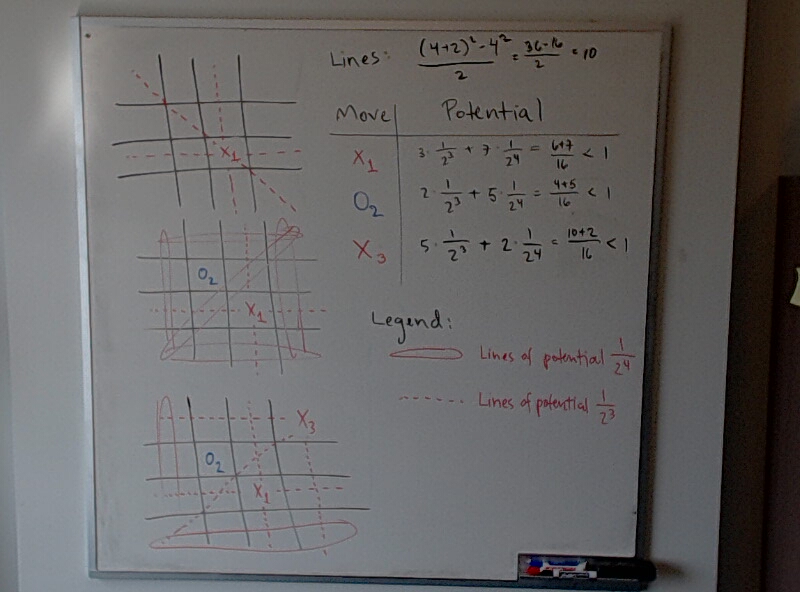 Lines: \frac{(4+2)^2 - 4^2}{2} = \frac{36-16}{2} = 10
Move | Potential
X_1 | 3 · \frac{1}{2^3} + 7 · \frac{1}{2^4} = \frac{6+7}{16} < 1
O_2 | 2 · \frac{1}{2^3} + 5 · \frac{1}{2^4} = \frac{4+5}{16} < 1
X_3 | 5 · \frac{1}{2^3} + 2 · \frac{1}{2^4} = \frac{10+2}{16} < 1
Legend:
Lines of potential \frac{1}{2^4}
Lines of potential \frac{1}{2^3}
X_1
O_2
X_1
X_3
O_2
X_1